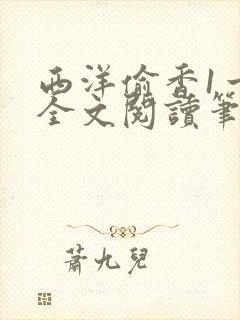 西洋偷香1一
全文閱讀筆
蕭九兒